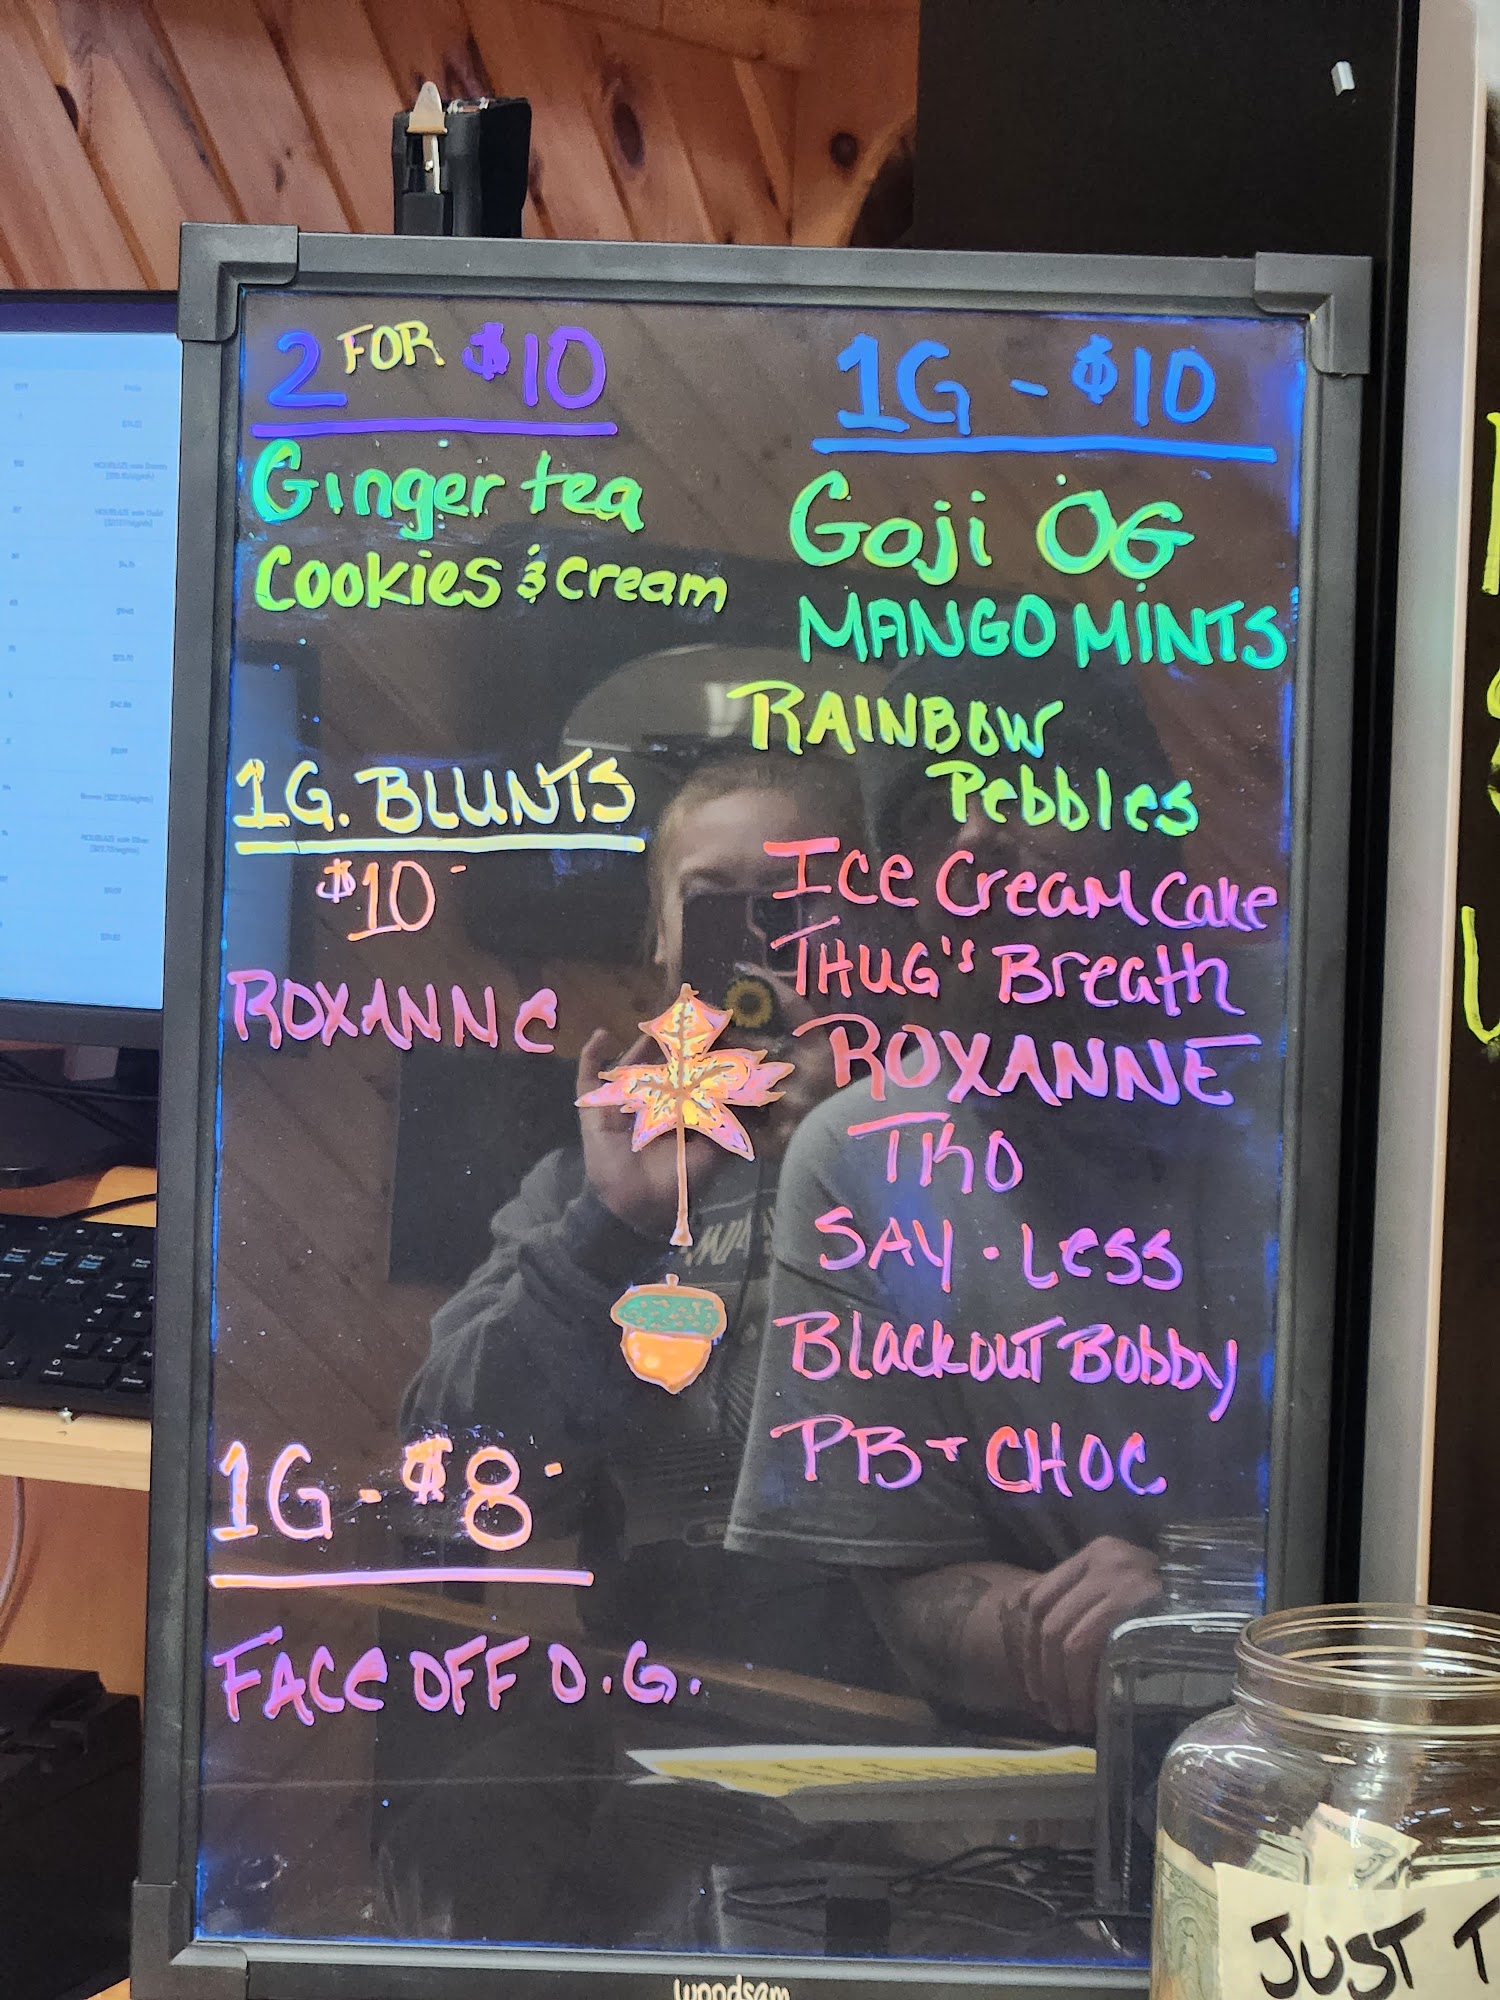 2 FOR $10
Ginger tea
Cookies & cream
1G. BLUNTS
$10-
ROXANNE
1G - $8-
FACE OFF O.G.
1G - $10
Goji OG
MANGO MINTS
RAINBOW
Pebbles
Ice Cream Cake
THUG's Breath
ROXANNE
TKO
SAY - Less
Blackout Bobby
PB + CHOC
woodsam
JUST T